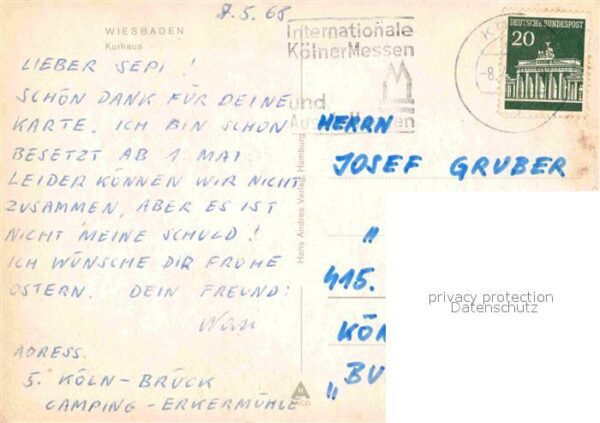 7.5.68
WIESBADEN
Kurhaus
LIEBER SEPI!
SCHÖN DANK FÜR DEINE
KARTE. ICH BIN SCHON
BESETZT AB 1. MAI
LEIDER KÖNNEN WIR NICHT
ZUSAMMEN, ABER ES IST
NICHT MEINE SCHULD!
ICH WÜNSCHE DIR FROHE
OSTERN. DEIN FREUND:
ADRESS.
5. KÖLN-BRÜCK
CAMPING-ERKERMÜHLE
Hans Andres Verlag, Hamburg
Internationale
KölnerMessen
und
DEUTSCHE BUNDESPOST
20
HERRN
JOSEF GRUBER
"
415.
KÖ
"BU
privacy protection
Datenschutz